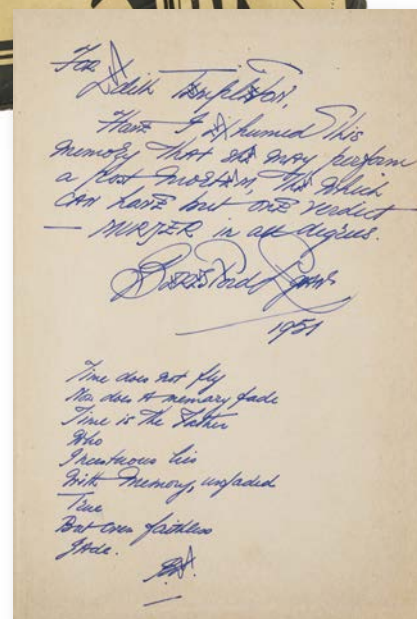 For
Edith Templeton,
Have I exhumed this
memory that she may perform
a post mortem, the which
can have but one verdict
— MURDER in all degrees.
Beresford Egan
1951
Time does not fly
Nor does a memory fade
Time is the Father
Who
Incestuous lies
With Memory, unfaded
True
But even faithless
Jade.